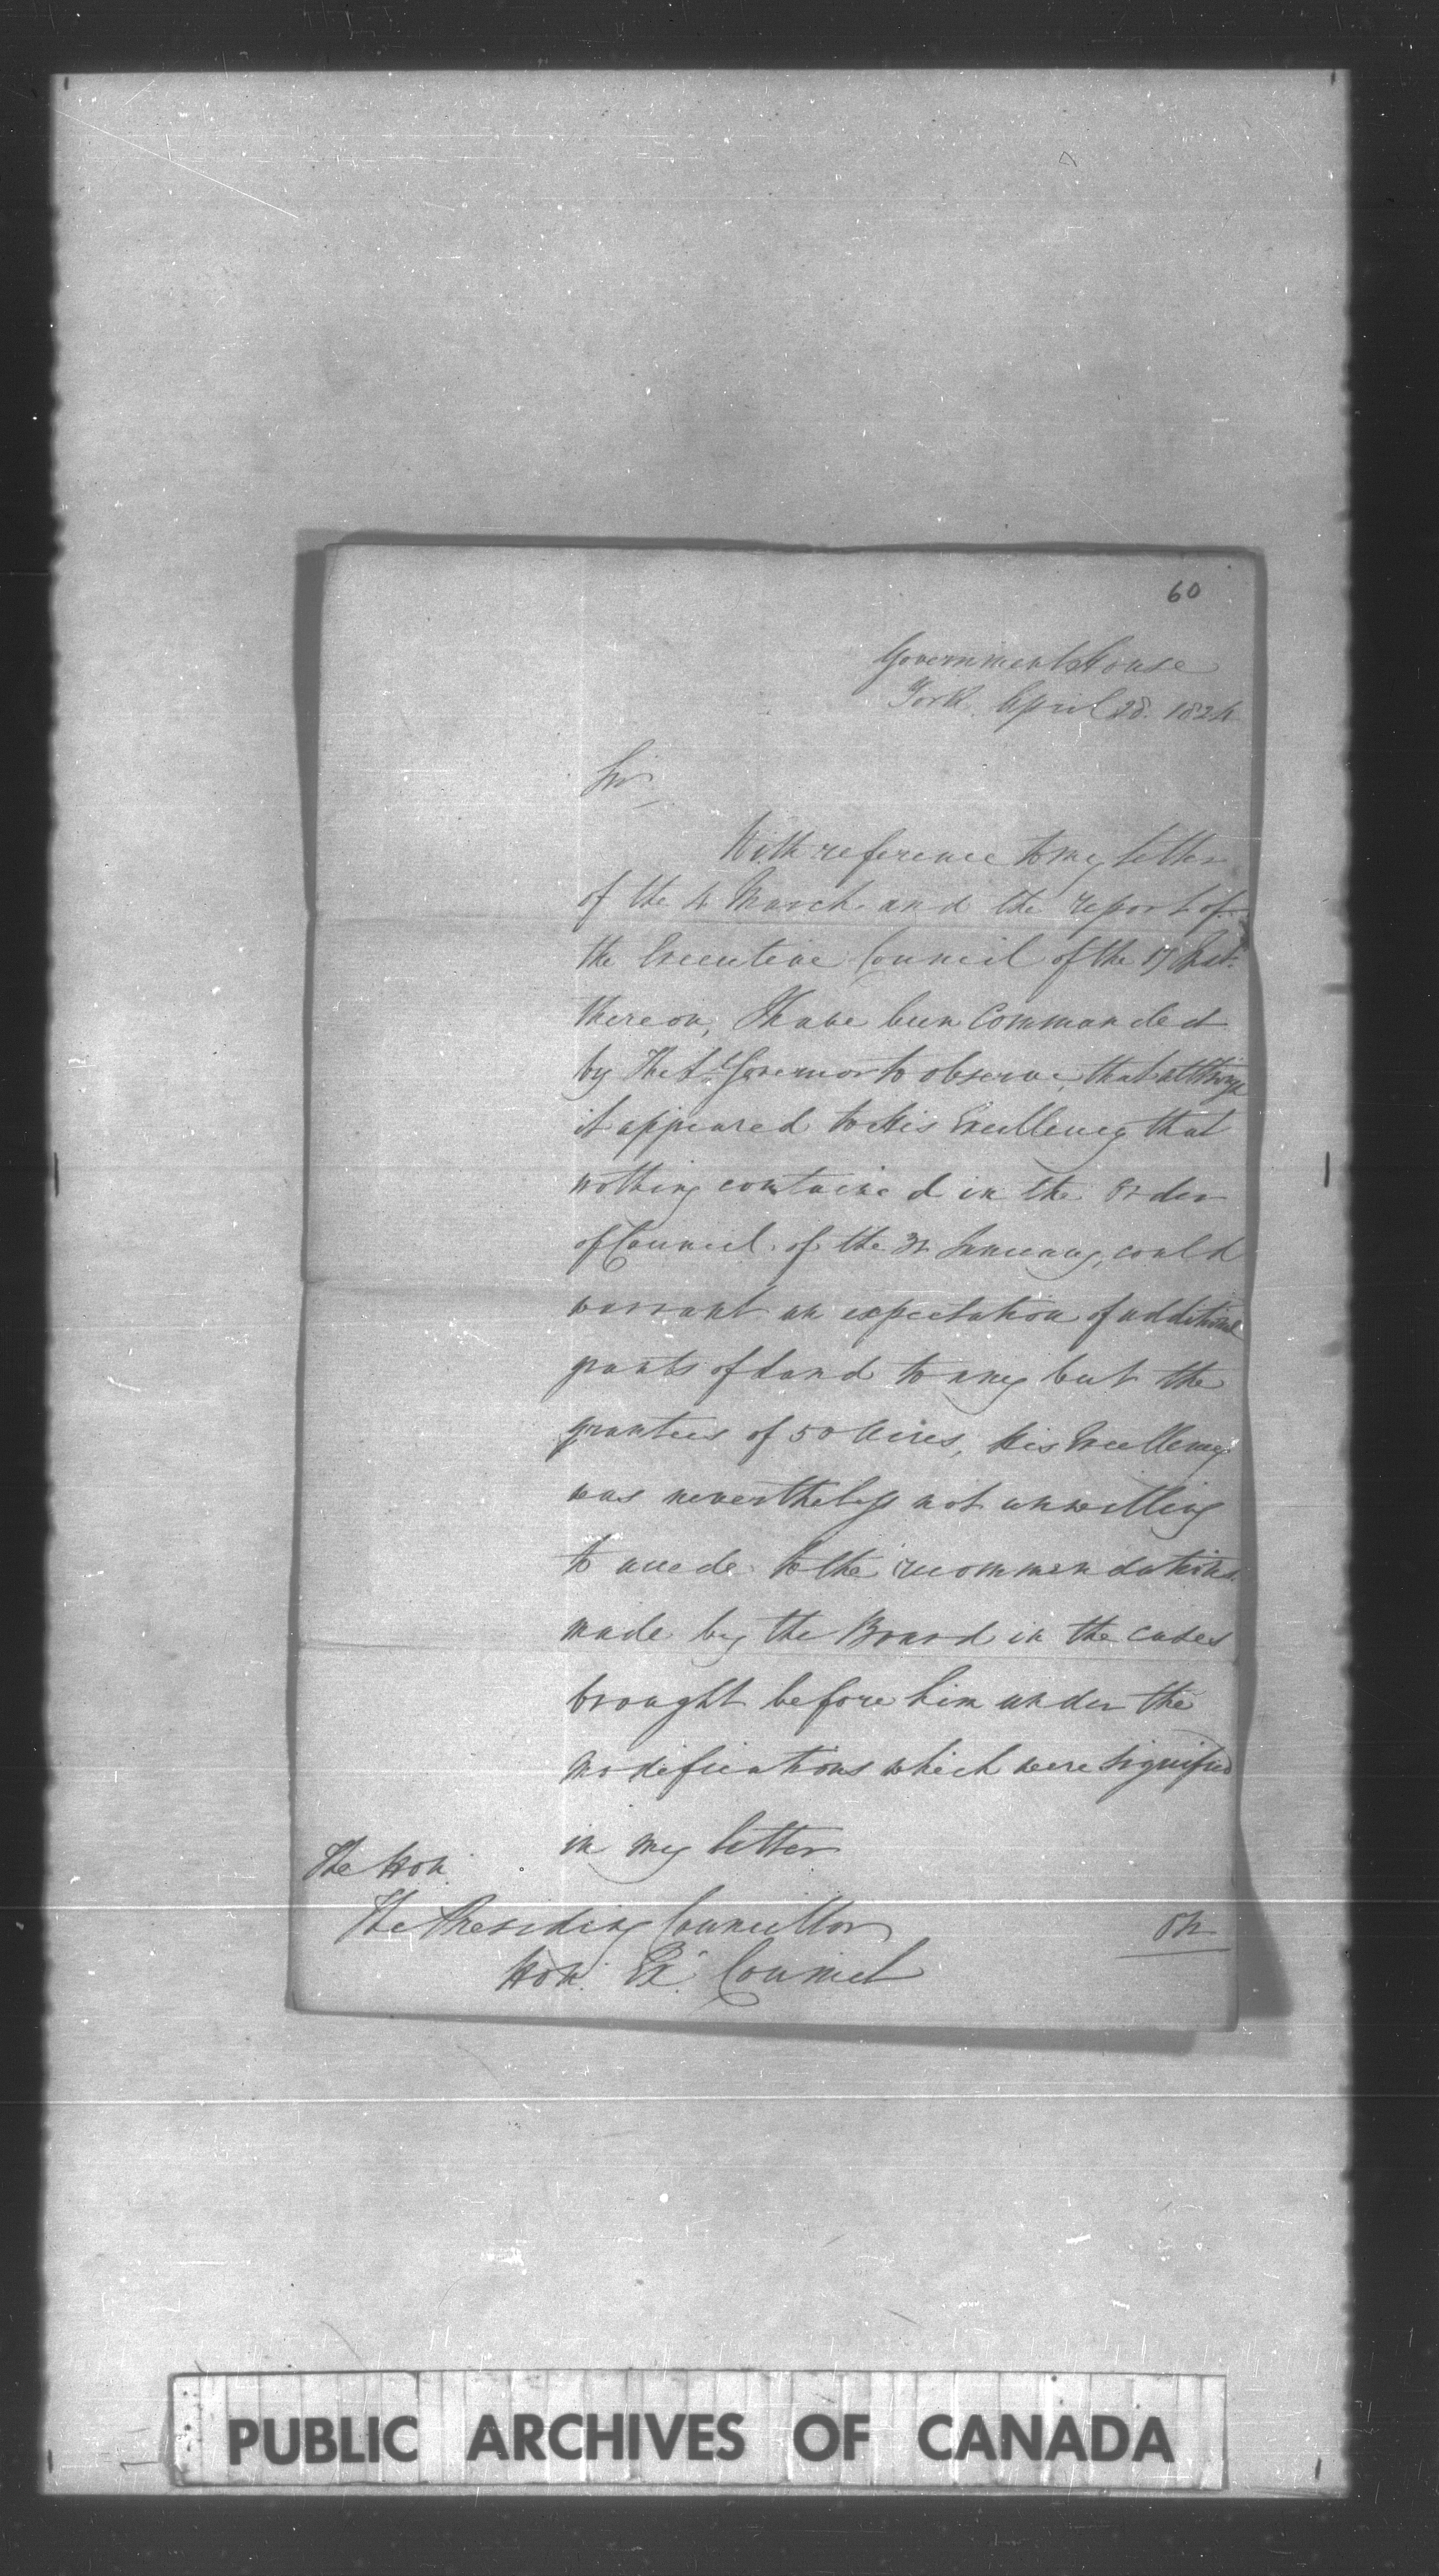 60
Government House
York April 28. 1824
Sir
With reference to my letter
of the 4 March and the report of
the Executive Council of the 17 Inst.
thereon, I have been Commanded
by The Lt. Governor to observe, that although
it appeared to His Excellency that
nothing contained in the Order
of Council of the January, could
warrant an expectation of additional
grants of Land to any but the
grantees of 50 Acres, His Excellency
was nevertheless not unwilling
to accede to the recommendations
made by the Board in the cases
brought before him under the
modifications which were signified
in my letter
The Hon.
The Presiding Councillor
Hon. Ex. Council
On
PUBLIC ARCHIVES OF CANADA